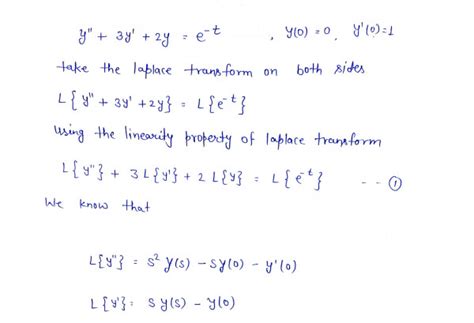 y'' + 3y' + 2y = e^-t , y(0) = 0, y'(0) = 1
take the laplace transform on both sides
L{ y'' + 3y' + 2y } = L{ e^-t }
using the linearity property of laplace transform
L{ y'' } + 3 L{ y' } + 2 L{ y } = L{ e^-t } -- ①
We know that
L{ y'' } = s² Y(s) - sy(0) - y'(0)
L{ y' } = s y(s) - y(0)